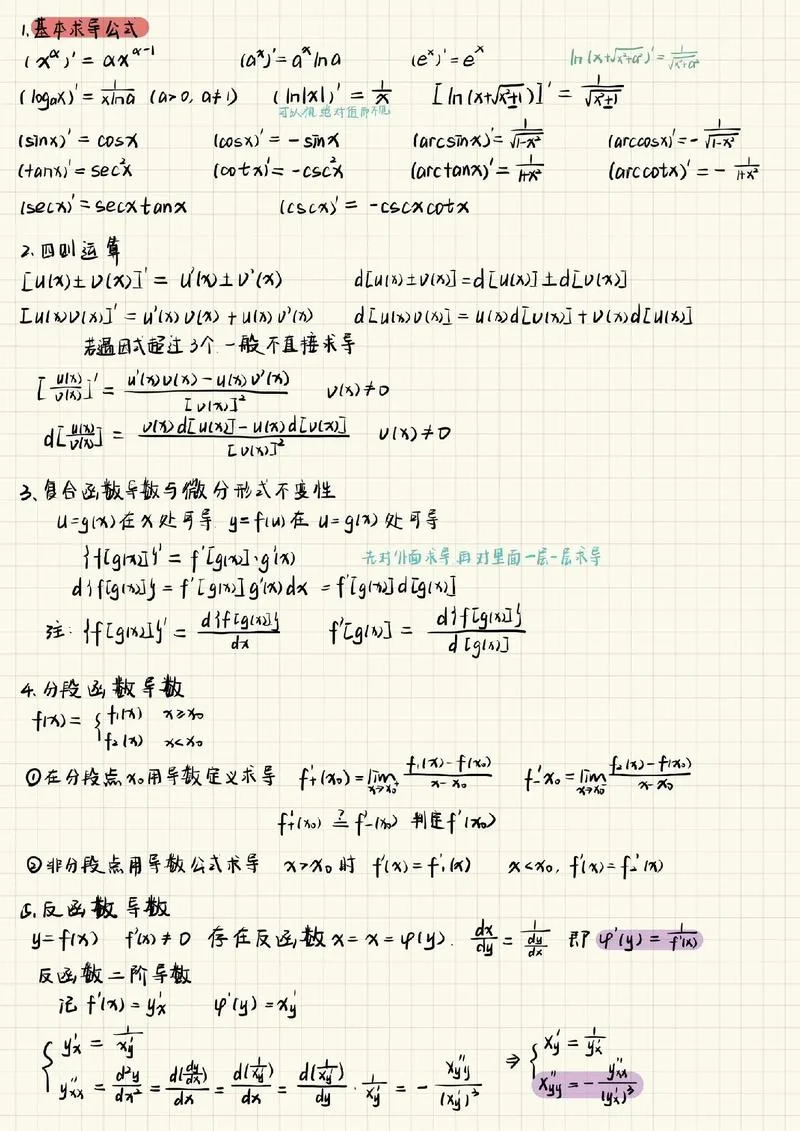 1.基本求导公式
(x^α)' = αx^(α-1)  (a^x)' = a^x lna  (e^x)' = e^x  ln(x+√(x²+a²))' = 1/√(x²+a²)
(log_a x)' = 1/(xlna) (a>0, a≠1)  (ln|x|)' = 1/x  [ln(x+√(x²+1))]' = 1/√(x²+1)
(sinx)' = cosx  (cosx)' = -sinx  (arcsinx)' = 1/√(1-x²)  (arccosx)' = -1/√(1-x²)
(tanx)' = sec²x  (cotx)' = -csc²x  (arctanx)' = 1/(1+x²)  (arccotx)' = -1/(1+x²)
(secx)' = secxtanx  (cscx)' = -cscxcotx
2.四则运算
[u(x)±v(x)]' = u'(x)±v'(x)  d[u(x)±v(x)]=d[u(x)]±d[v(x)]
[u(x)v(x)]' = u'(x)v(x)+u(x)v'(x)  d[u(x)v(x)] = u(x)d[v(x)]+v(x)d[u(x)]
若遇因式超过3个.一般不直接求导
[u(x)/v(x)]' = (u'(x)v(x)-u(x)v'(x))/[v(x)]²  v(x)≠0
d[u(x)/v(x)] = (v(x)d[u(x)]-u(x)d[v(x)])/[v(x)]²  v(x)≠0
3、复合函数导数与微分形式不变性
u=g(x)在x处可导 y=f(u)在u=g(x)处可导
{f[g(x)]}' = f'[g(x)]·g'(x)  先对外面求导,再对里面一层一层求导
d{f[g(x)]} = f'[g(x)]g'(x)dx = f'[g(x)]d[g(x)]
注: {f[g(x)]}' = d{f[g(x)]}/dx  f'[g(x)] = d{f[g(x)]}/d[g(x)]
4、分段函数导数
f(x)= { f₁(x) x≥x₀
f₂(x) x<x₀
①在分段点x₀用导数定义求导 f'₊(x₀)=lim x→x₀⁺ (f₁(x)-f(x₀))/(x-x₀)  f'₋x₀=lim x→x₀⁻ (f₂(x)-f(x₀))/(x-x₀)
f'₊(x₀) ≟ f'₋(x₀) 判定f'(x₀)
②非分段点用导数公式求导 x>x₀时 f'(x)=f₁'(x)  x<x₀, f'(x)=f₂'(x)
5.反函数导数
y=f(x) f'(x)≠0 存在反函数x=x=φ(y). dx/dy = 1/(dy/dx) 即 φ'(y)=1/f'(x)
反函数二阶导数
记f'(x)=y'ₓ  φ'(y)=x'_y
{ y'ₓ = 1/x'_y  ⇒ { x'_y = 1/y'ₓ
y''ₓₓ = d²y/dx² = d(dy/dx)/dx = d(1/x'_y)/dx = d(1/x'_y)/dy · 1/x'_y = -x''_yy/(x'_y)³  x''_yy = -y''ₓₓ/(y'ₓ)³